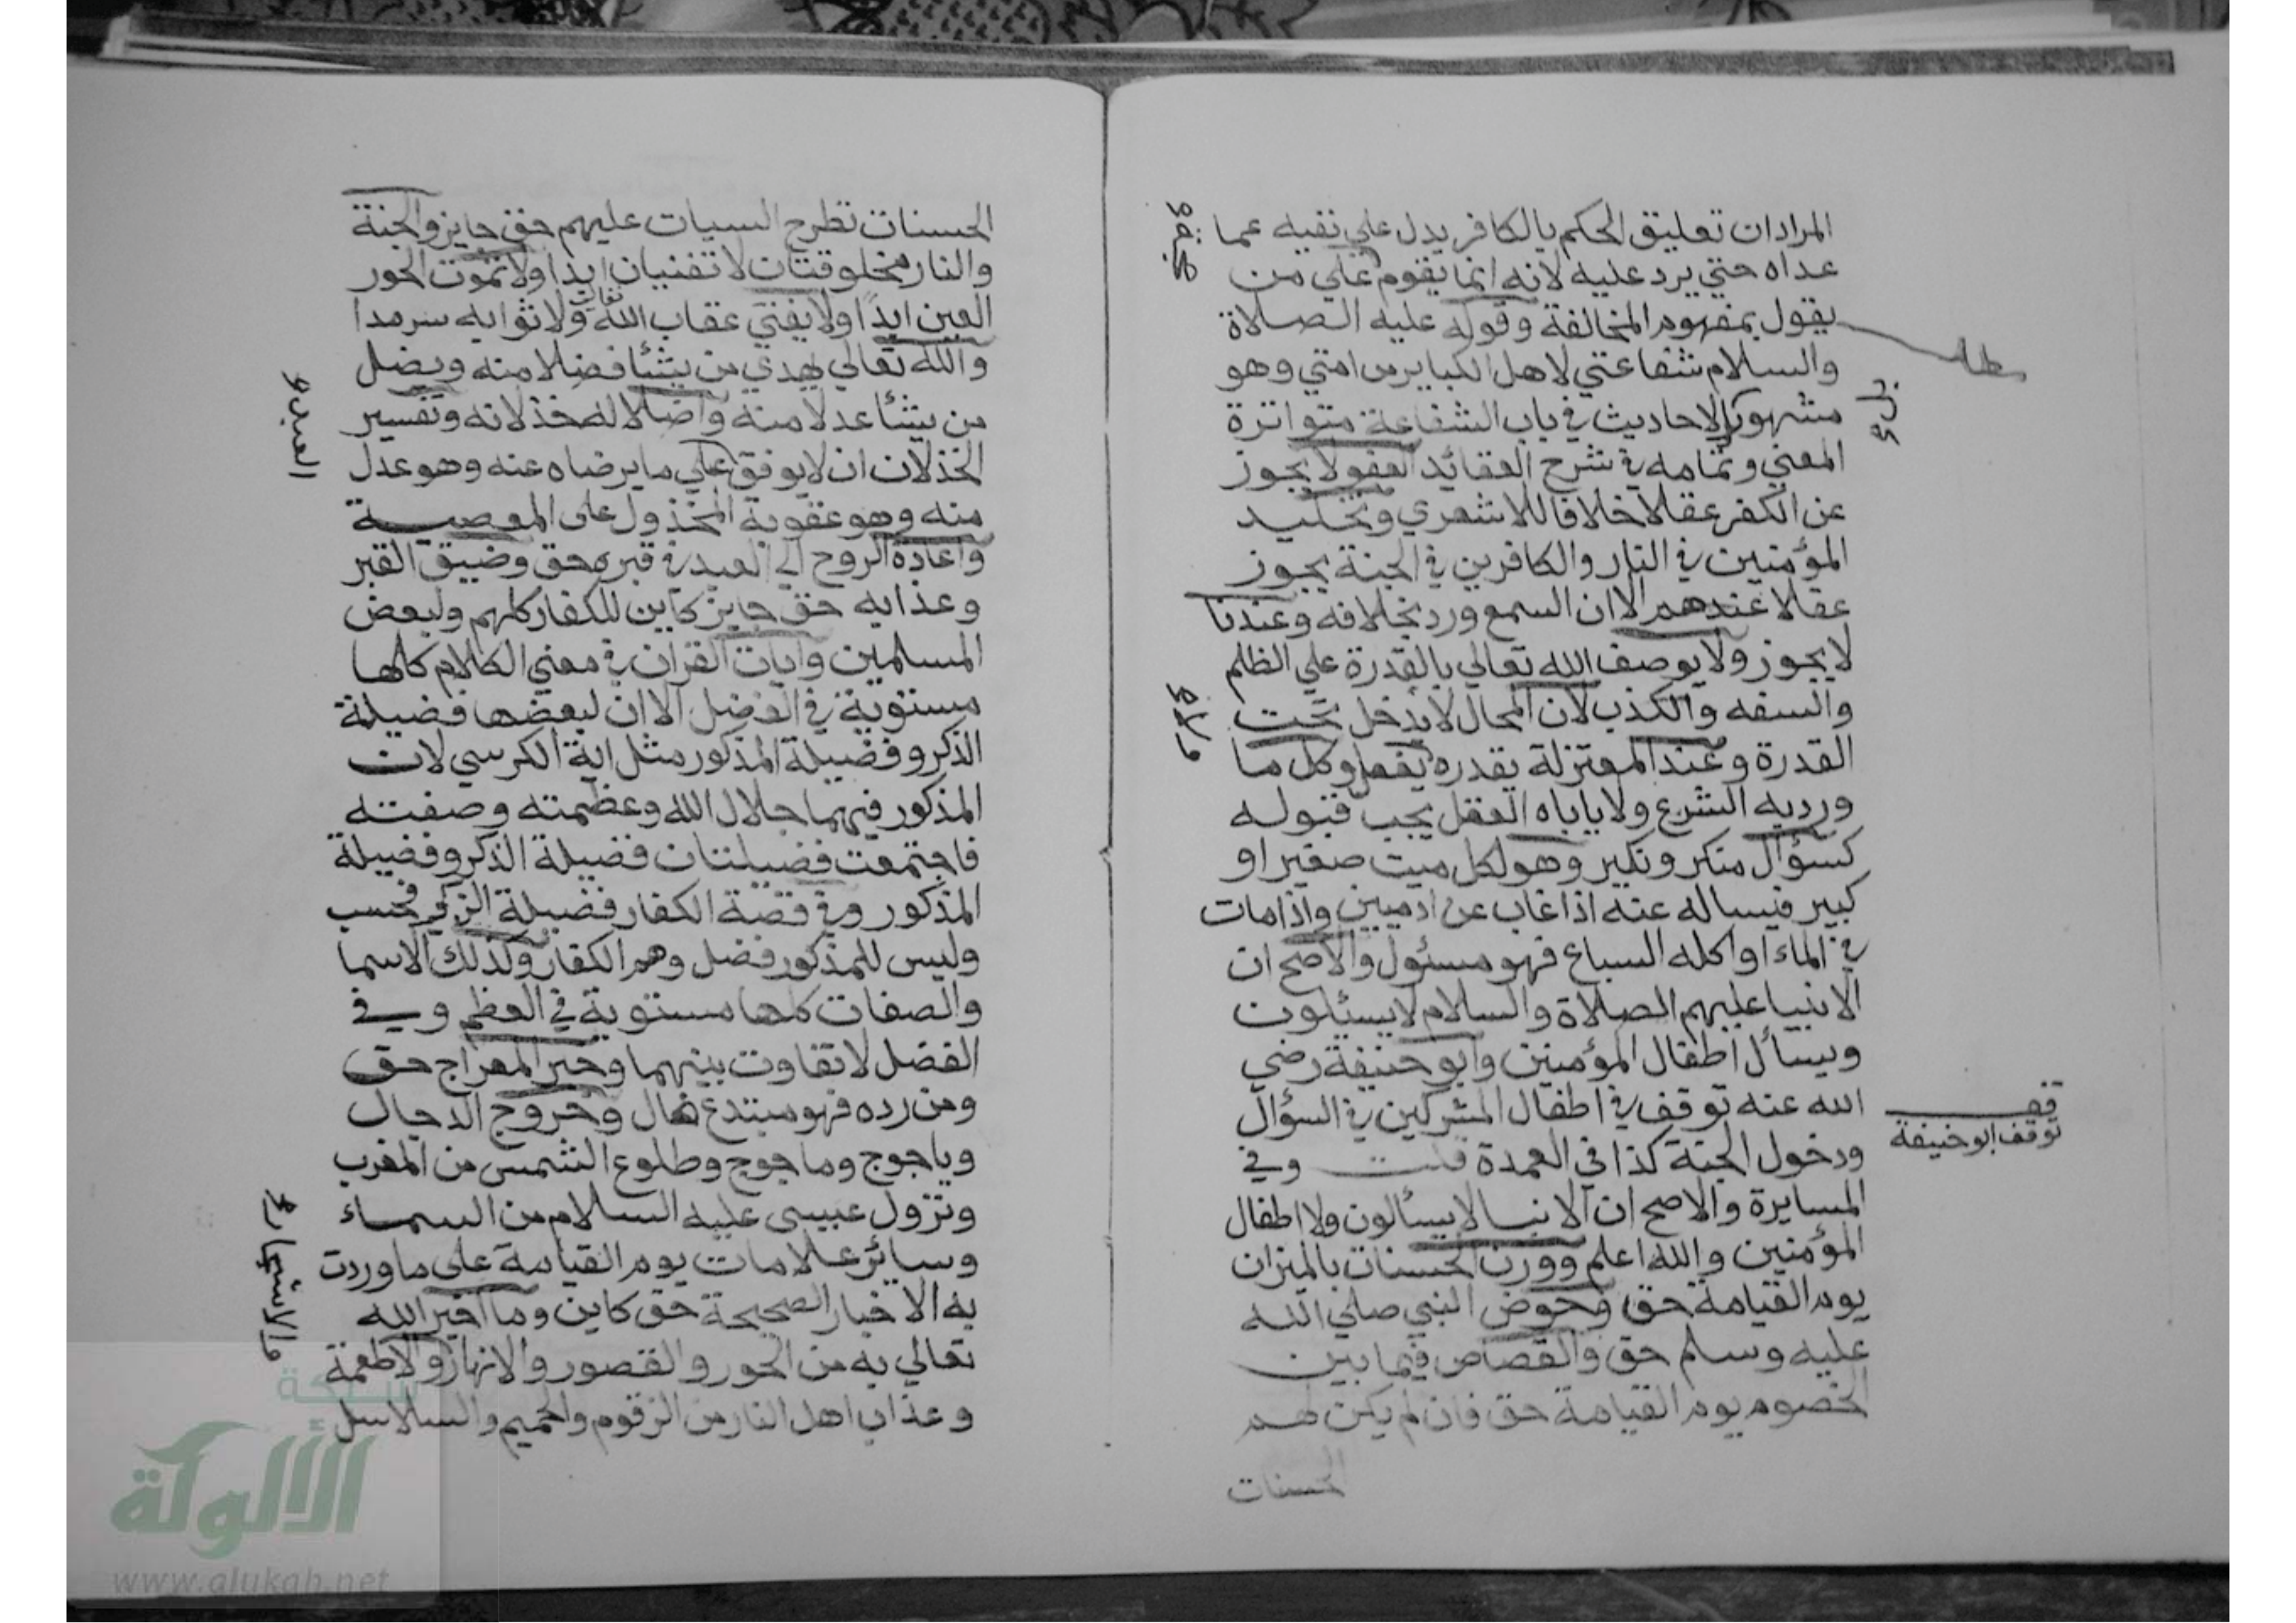 المرادان تعليق الحكم بالكافر يدل علي نفيه عما
عداه حتي يرد عليه لانه انما يقوم علي من
يقول بمفهوم المخالفة وقوله عليه الصلاة
والسلام شفاعتي لاهل الكباير من امتي وهو
مشهور والاحاديث في باب الشفاعة متواترة
المعني وتمامه في شرح العقائد العفو لا يجوز
عن الكفر عقلا خلافا للاشعري وتخليد
المؤمنين في النار والكافرين في الجنة يجوز
عقلا عندهم الا ان السمع ورد بخلافه وعندنا
لا يجوز ولا يوصف الله تعالي بالقدرة علي الظلم
والسفه والكذب لان المحال لا يدخل تحت
القدرة وعند المعتزلة يقدر ولا يفعل وكل ما
ورد به الشرع ولا ياباه العقل يجب قبوله
كسؤال منكر ونكير وهو لكل ميت صغير او
كبير فيساله عنه اذا غاب عن ادميين واذا مات
في الماء او اكله السباع فهو مسئول والاصح ان
الانبيا عليهم الصلاة والسلام لا يسئلون
ويسأل اطفال المؤمنين وابو حنيفة رضي
الله عنه توقف في اطفال المشركين في السؤال
ودخول الجنة كذا في العمدة قلت وفي
المسايرة والاصح ان الانبيا لا يسألون ولا اطفال
المؤمنين والله اعلم ووزن الحسنات بالميزان
يوم القيامة حق وحوض النبي صلي الله
عليه وسلم حق والقصاص فيما بين
الخصوم يوم القيامة حق فان لم يكن لهم
الحسنات
قف
توقف ابو حنيفة
الحسنات تطرح السيات عليهم حق جايز والجنة
والنار مخلوقتان لا تفنيان ابدا ولا تموت الحور
العين ابدًا ولا يفني عقاب الله تعالى ولا ثوابه سرمدا
والله تعالي يهدي من يشا فضلا منه ويضل
من يشأ عدلا منه واضلاله خذلانه وتفسير
الخذلان ان لا يوفق علي ما يرضاه عنه وهو عدل
منه وهو عقوبة المخذول على المعصية
واعادة الروح الي العبد في قبره حق وضيق القبر
وعذابه حق جايز كاين للكفار كلهم ولبعض
المسلمين وايات القران في معني الكلام كلها
مستوية في الفضل الا ان لبعضها فضيلة
الذكر وفضيلة المذكور مثل اية الكرسي لان
المذكور فيهما جلال الله وعظمته وصفته
فاجتمعت فضيلتان فضيلة الذكر وفضيلة
المذكور وفي قصة الكفار فضيلة الذكر فحسب
وليس للمذكور فضل وهم الكفار وكذلك الاسما
والصفات كلها مستوية في العظم وفي
الفضل لا تفاوت بينهما وخبر المعراج حق
ومن رده فهو مبتدع ضال وخروج الدجال
وياجوج وماجوج وطلوع الشمس من المغرب
ونزول عيسى عليه السلام من السماء
وسائر علامات يوم القيامة على ما وردت
به الاخبار الصحيحة حق كاين وما اخبر الله
تعالي به من الحور والقصور والانهار والاطعمة
وعذاب اهل النار من الزقوم والحميم والسلاسل
العبد
والاشجار
شبكة
الألوكة
www.alukah.net